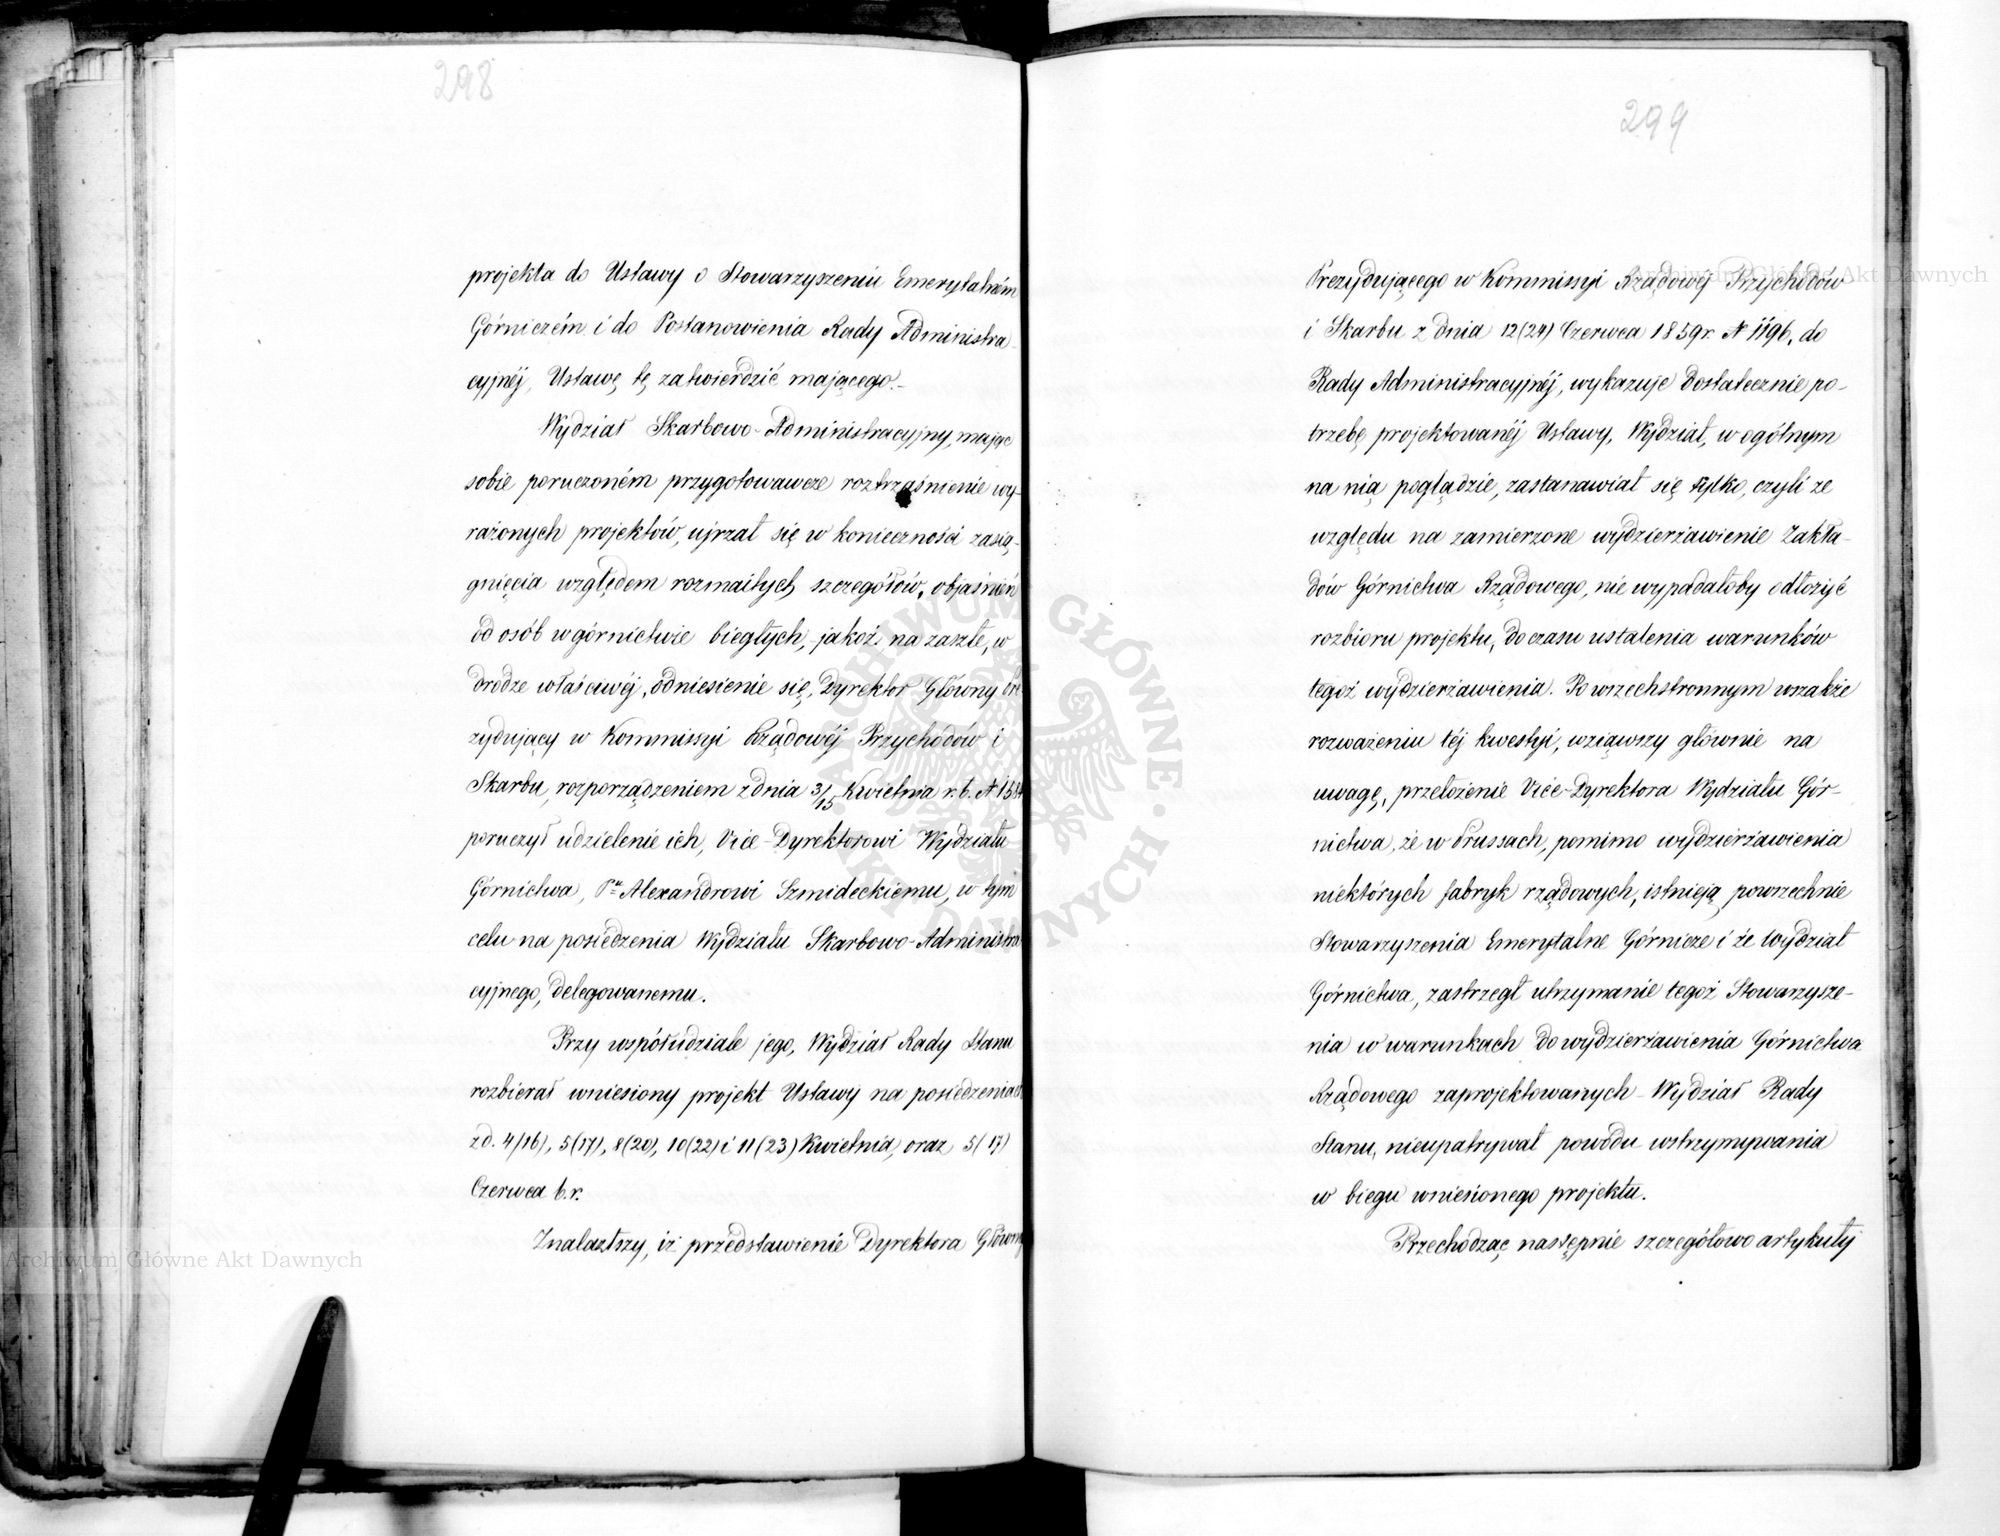 298
projekta do Ustawy o Stowarzyszeniu Emerytalném
Górniczém i do Postanowienia Rady Administra-
cyjnéj, Ustawę tę zatwierdzić mającego.-
Wydział Skarbowo-Administracyjny, mając
sobie poruczoném przygotowawcze roztrząśnienie wy-
rażonych projektów, ujrzał się w konieczności zasią-
gnięcia względem rozmaitych szczegółów, objaśnień
od osób w górnictwie biegłych, jakoż na zaszłe, w
drodze właściwéj, odniesienie się, Dyrektor Główny Pre
zydujący w Kommissyi Rządowéj Przychodów i
Skarbu, rozporządzeniem z dnia 3/15 Kwietnia r. b. N
poruczył udzielenie ich, Vice-Dyrektorowi Wydziału
Górnictwa, Pu Alexandrowi Szmideckiemu, w tym
celu na posiedzenia Wydziału Skarbowo-Administra
cyjnego, delegowanemu.
Przy współudziale jego, Wydział Rady Stanu
rozbierał wniesiony projekt Ustawy na posiedzeniach
z d. 4/16), 5(17), 8(20), 10(22) i 11(23) Kwietnia, oraz 5(17)
Czerwca b. r.
Znalazłszy, iż przedstawienie Dyrektora Główneg
299
Prezydującego w Kommissyi Rządowéj Przychodów
i Skarbu z dnia 12(24) Czerwca 1859 r. N 1196, do
Rady Administracyjnéj, wykazuje dostatecznie po-
trzebę projektowanéj Ustawy, Wydział, w ogólnym
na nią poglądzie, zastanawiał się tylko, czyli ze
względu na zamierzone wydzierżawienie Zakła-
dów Górnictwa Rządowego, nie wypadałoby odłożyć
rozbioru projektu, do czasu ustalenia warunków
tegoż wydzierżawienia. Po wszechstronnym wszakże
rozważeniu téj kwestyi, wziąwszy głównie na
uwagę, przełożenie Vice-Dyrektora Wydziału Gór-
nictwa, że w Prussach, pomimo wydzierżawienia
niektórych fabryk rządowych, istnieją powszechnie
Stowarzyszenia Emerytalne Górnicze i że Wydział
Górnictwa, zastrzegł utrzymanie tegoż Stowarzysze-
nia w warunkach do wydzierżawienia Górnictwa
Rządowego zaprojektowanych - Wydział Rady
Stanu, nieupatrywał powodu wstrzymywania
w biegu wniesionego projektu.
Przechodząc następnie szczegółowo artykuły
Archiwum Główne Akt Dawnych
Archiwum Główne Akt Dawnych
ARCHIWUM GŁÓWNE AKT DAWNYCH